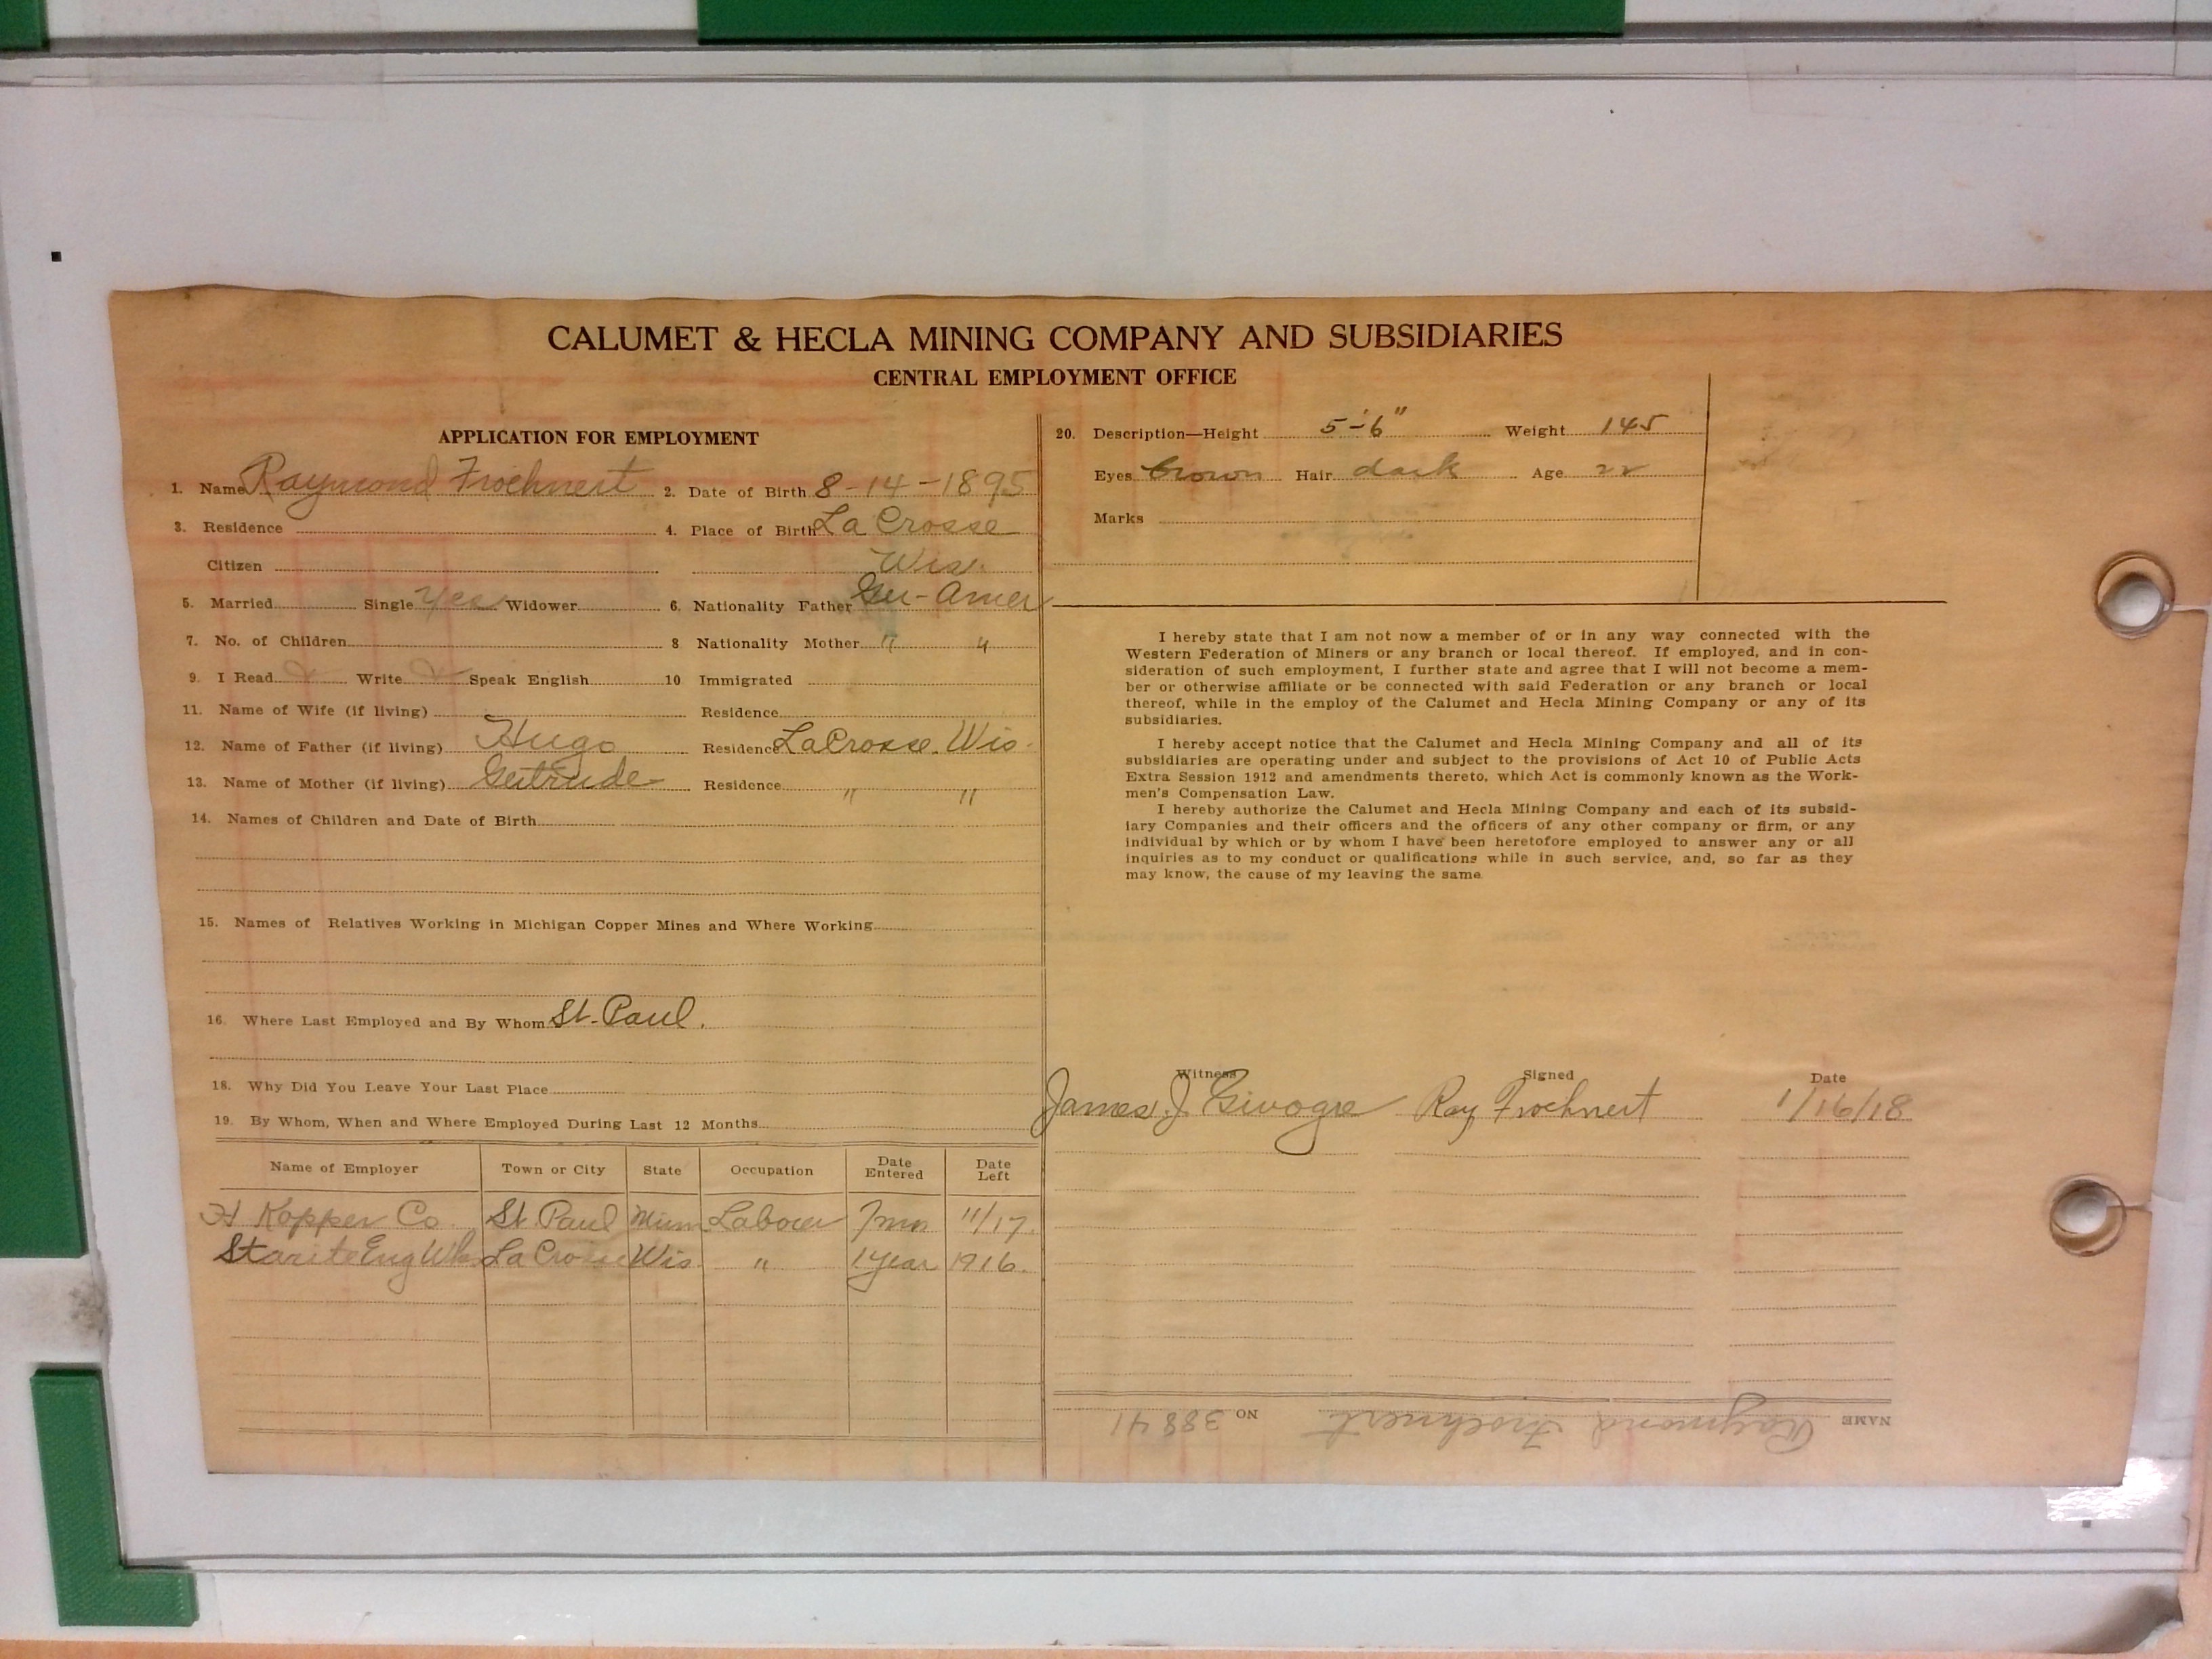 CALUMET & HECLA MINING COMPANY AND SUBSIDIARIES
CENTRAL EMPLOYMENT OFFICE
APPLICATION FOR EMPLOYMENT
1. Name Raymond Frochnert 2. Date of Birth 8-14-1895
3. Residence 4. Place of Birth La Crosse
Citizen Wis.
5. Married Single Yes Widower 6. Nationality Father Ger-Amer
7. No. of Children 8 Nationality Mother " "
9. I Read Write Speak English 10 Immigrated
11. Name of Wife (if living) Residence
12. Name of Father (if living) Hugo Residence LaCrosse. Wis.
13. Name of Mother (if living) Gertrude Residence " "
14. Names of Children and Date of Birth
15. Names of Relatives Working in Michigan Copper Mines and Where Working
16. Where Last Employed and By Whom St. Paul.
18. Why Did You Leave Your Last Place
19. By Whom, When and Where Employed During Last 12 Months
Name of Employer Town or City State Occupation Date Entered Date Left
Kopper Co St. Paul Minn Labour 11/17.
Eng Wks La Crosse Wis. " 1 Year 1916.
20. Description—Height 5-6" Weight 145
Eyes brown Hair dark Age 22
Marks
I hereby state that I am not now a member of or in any way connected with the
Western Federation of Miners or any branch or local thereof. If employed, and in con-
sideration of such employment, I further state and agree that I will not become a mem-
ber or otherwise affiliate or be connected with said Federation or any branch or local
thereof, while in the employ of the Calumet and Hecla Mining Company or any of its
subsidiaries.
I hereby accept notice that the Calumet and Hecla Mining Company and all of its
subsidiaries are operating under and subject to the provisions of Act 10 of Public Acts
Extra Session 1912 and amendments thereto, which Act is commonly known as the Work-
men's Compensation Law.
I hereby authorize the Calumet and Hecla Mining Company and each of its subsid-
iary Companies and their officers and the officers of any other company or firm, or any
individual by which or by whom I have been heretofore employed to answer any or all
inquiries as to my conduct or qualifications while in such service, and, so far as they
may know, the cause of my leaving the same
Witness Signed Date
James. J. Ray Frochnert 1/16/18
NAME Raymond Frochnert NO 38841